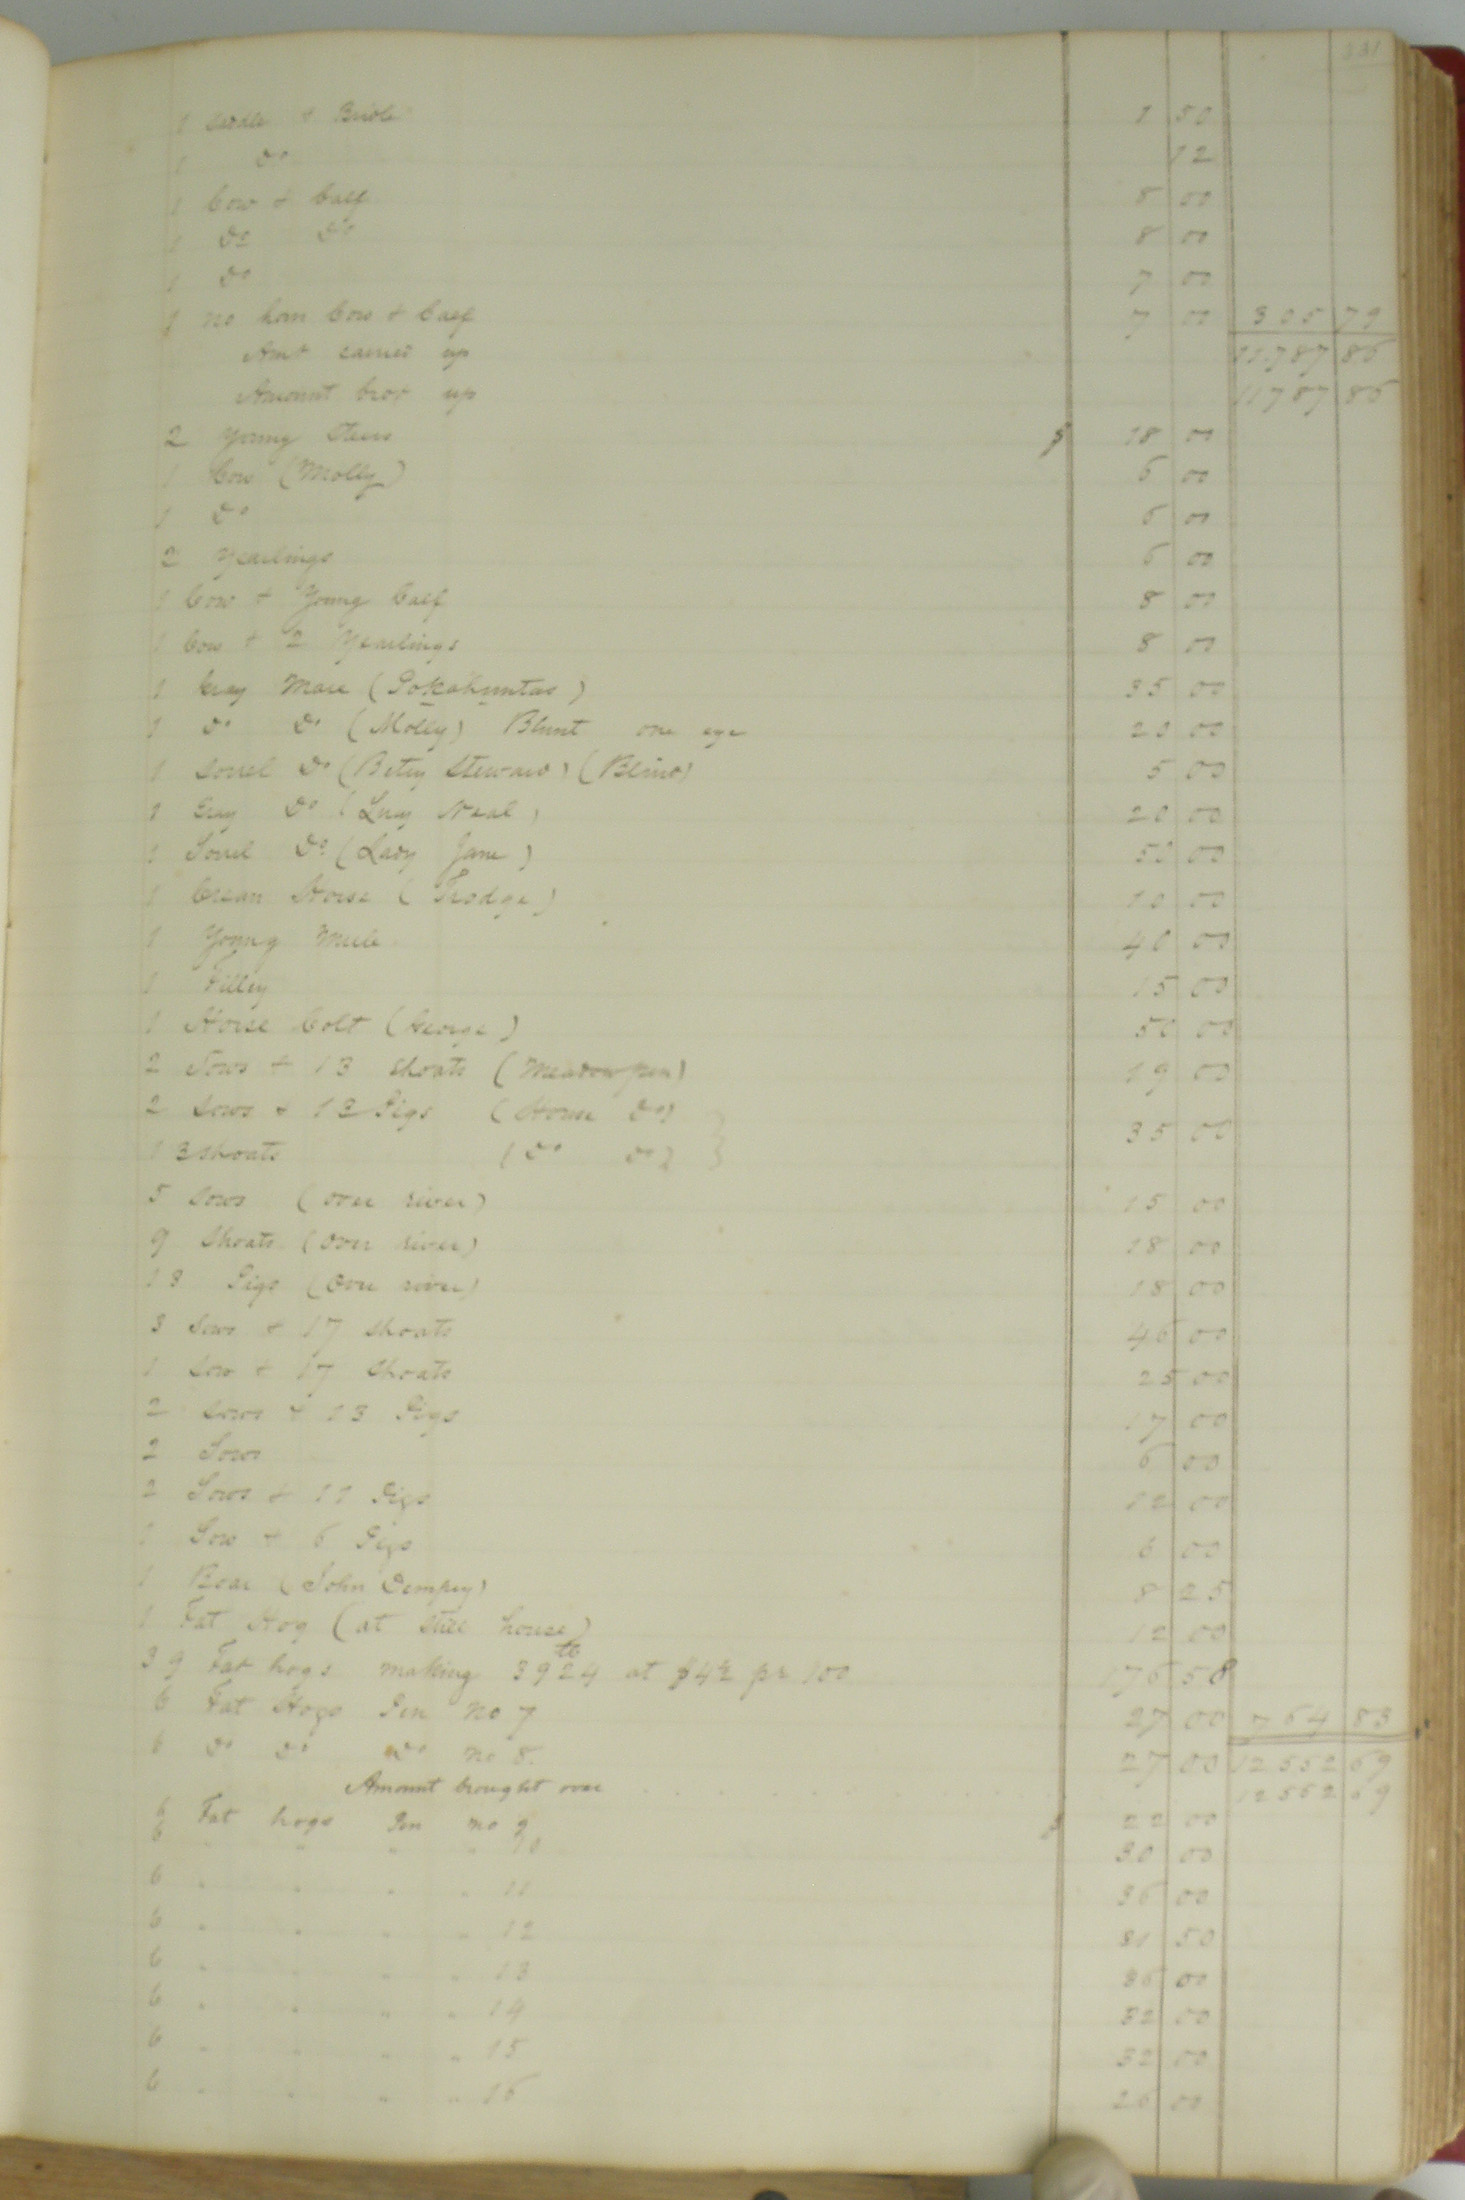 231
1 Saddle + Bridle 1 50
1 Do 12
1 Cow + Calf 8 00
1 Do Do 8 00
1 Do 7 00
1 no horn Cow + Calf 7 00 305 79
Amt carried up 11787 86
Amount brot up 11787 86
2 Young Steers $ 18 00
1 Cow (Molly) 6 00
1 Do 6 00
2 Yearlings 6 00
1 Cow + Young Calf 8 00
1 Cow + 2 Yearlings 8 00
1 Gray Mare (Pokahuntas) 35 00
1 Do Do (Molly) Blunt one eye 20 00
1 Sorrel Do (Betsy Steward) (Blind) 5 00
1 Gray Do (Lucy Neal) 20 00
1 Sorrel Do (Lady Jane) 50 00
1 Cream Horse (Frodge) 10 00
1 Young Mule 40 00
1 Filley 15 00
1 Horse Colt (George) 50 00
2 Sows + 13 Shoats (Meadow pen) 19 00
2 Sows + 13 Pigs (Home Do)
13 Shoats (Do Do) 35 00
5 Sows (over river) 15 00
9 Shoats (over river) 18 00
13 Pigs (Over river) 18 00
3 Sows + 17 Shoats 46 00
1 Sow + 17 Shoats 25 00
2 Sows + 13 Pigs 17 00
2 Sows 6 00
2 Sows + 11 Pigs 12 00
1 Sow + 6 Pigs 6 00
1 Boar (John Dempsy) 8 25
1 Fat Hog (at still house) 12 00
39 Fat hogs making 3924 lb at $4½ pr 100 176 58
6 Fat Hogs Pen No 7 27 00 764 83
6 Do Do Do No 8. 27 00 12552 69
Amount brought over 12552 69
6 Fat hogs Pen no 9 $ 22 00
6 " " " " 10 30 00
6 " " " " 11 36 00
6 " " " " 12 31 50
6 " " " " 13 36 00
6 " " " " 14 32 00
6 " " " " 15 32 00
6 " " " " 16 26 00